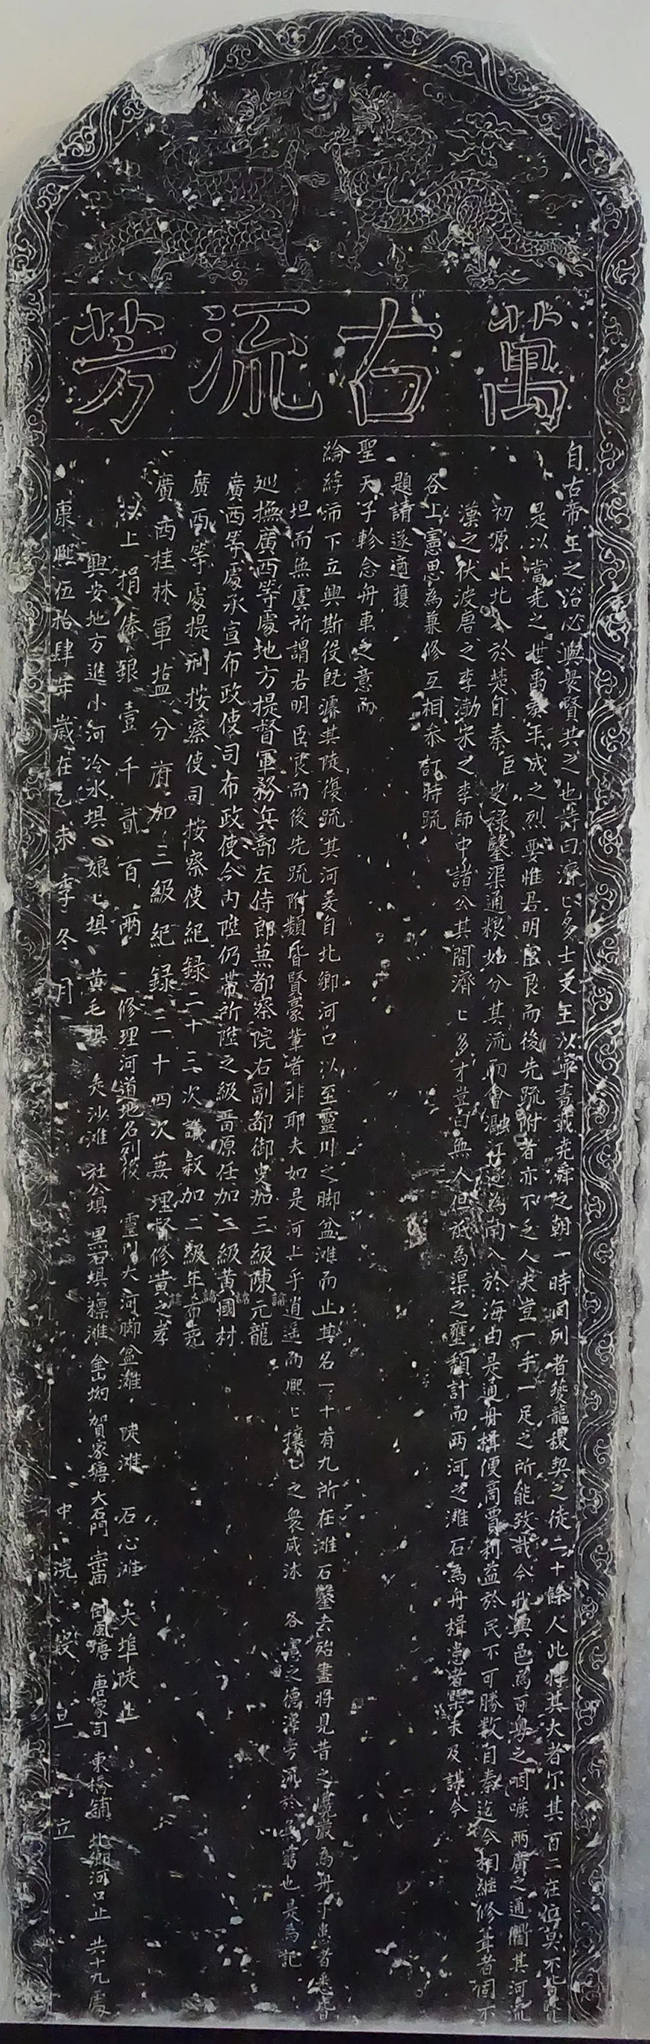 萬古流芳
自古帝王之治必與衆賢共之也詩曰濟匕多士文王以寧書載堯舜之朝一時同列者夔龍稷契之後二十餘人此特其大者尓其百二在位莫不皆
是以當堯之世而奏年成之烈要惟君明臣良而後先疏附者亦不乏人夫豈一手一足之所能致哉今我興邑為百粵之咽喉兩廣之通衢其河流
初源止北入於楚自秦臣史祿鑿渠通糧始分其流而會瀜江遂為南入於海由是通舟楫便商賈利益於民不可勝數自秦迄今相繼修葺者固不
漢之伏波唐之李渤宋之李師中諸公其間濟匕多才豈曰無人但祇為渠之壅積計而兩河之灘石為舟楫患者未及謀今
各上憲思為兼修互相奈訂特疏
題請遂適獲
聖天子軫念舟車之意而
綸綍沛下立興斯役旣濬其陡復疏其河爰自北鄉河口以至靈川之脚盆灘而止其名一十有九所在灘石鑿去殆盡將見昔之巉巖為舟子患者悉皆
坦而無虞所謂君明臣良而後先疏附類皆賢豪輩者非耶夫如是河上乎逍遙而熙匕攘匕之衆咸沐各憲之德澤芳流於萬也是為記
巡撫廣西等處地方提督軍務兵部左侍郎兼都察院右副都御史加三級陳元龍
廣西等處承宣布政使司布政使今內陞仍帶所陞之級晋原任加二級黃國材
廣西等處提刑按察使司按察使紀錄二十三次議叙加二級年希堯
廣西桂林軍塩分府加三級紀錄二十四次兼理督修黃之孝
以上捐俸銀壹千貳百兩 修理河道地名列後 靈川大河脚盆灘 陡灘 石心灘 大埠陡止
興安地方進小河冷水埧 娘匕埧 黃毛埧 炙沙灘 社公埧 黑石埧 標灘 賀家塘 大石門 宗田 倒風塘 唐家司 東橋舖 北鄉河口止 共十九處
康熙伍拾肆年歲在乙未季冬月 中浣 穀旦 立